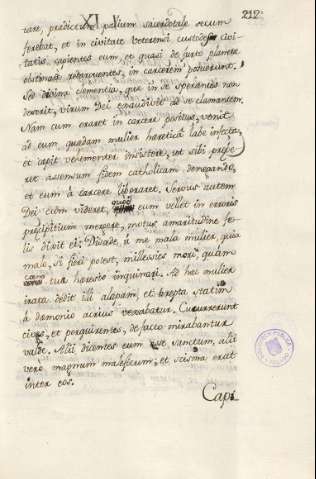 XI
212
care, prædictum palium sacerdotale secum
ferebat, et in civitate Veterensi custodes civi-
tatis capientes eum, et quasi de furto planeta
obstinate arguentes, in carcerem posuerunt.
Sed divina clementia, quæ in se sperantes non
deserit, virum Dei exaudivit ad se clamantem.
Nam cum oraret in carcere positus, venit
ad eum quædam mulier hæretica labe infecta,
et cæpit vehementer insistere, ut sibi præbe-
ret assensum fidem catholicam denegando,
et eum à carcere liberaret. Servus autem
Dei cùm videret, quod eum vellet in erroris
præcipitium mergere, motus amaritudine fe-
lis dixit ei: Discede à me mala mulier, quia
malo, si fieri potest, millessies mori, quam
tua hæresis inquinari. Ad hec mulier
irata dedit illi alapam, et arrepta statim
à dæmonio acrius vexabatur. Cucurrerunt
cives, et perquirentes, de facto mirabantur
valde. Alii dicentes eum esse sanctum, alii
vero magnum maleficum, et scisma erat
inter eos.
Capi